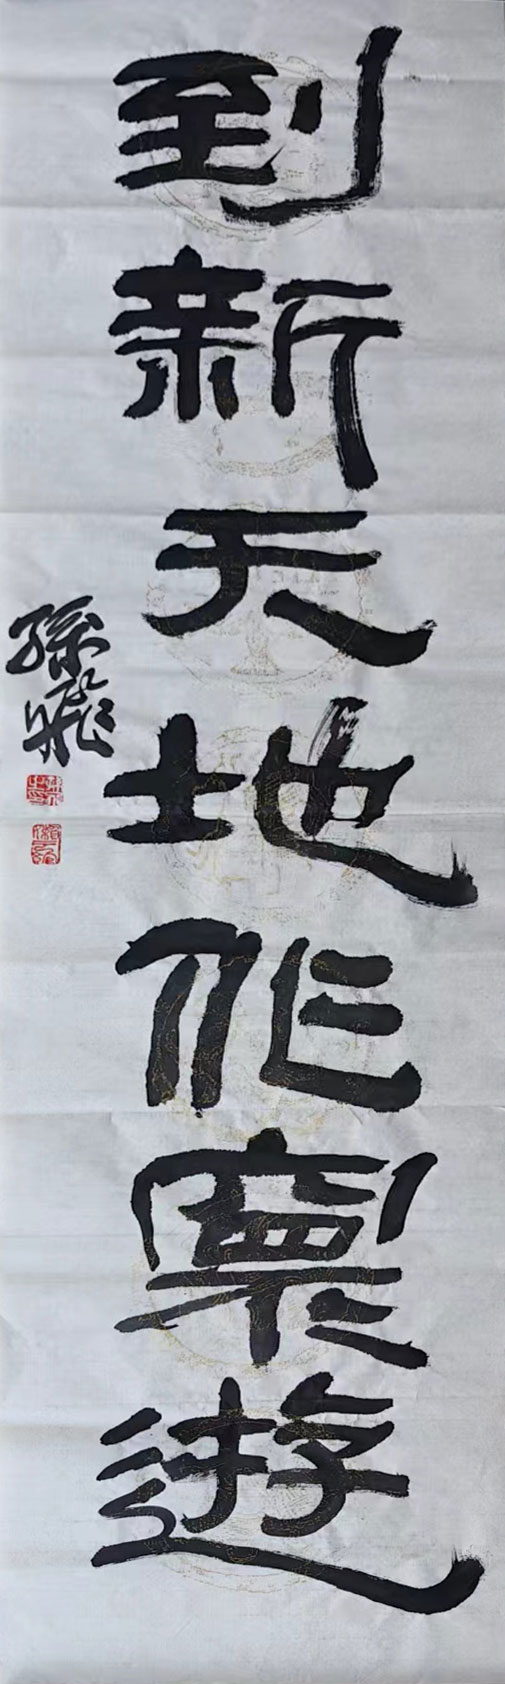 到新天地作寰遊
孫飛